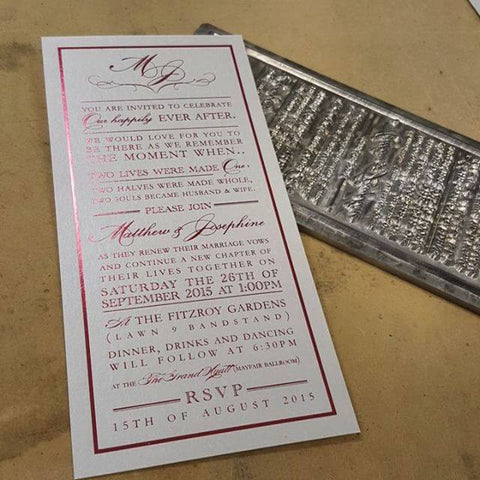 MJ
YOU ARE INVITED TO CELEBRATE
Our happily EVER AFTER.
WE WOULD LOVE FOR YOU TO
BE THERE AS WE REMEMBER
THE MOMENT WHEN..
TWO LIVES WERE MADE One,
TWO HALVES WERE MADE WHOLE,
TWO SOULS BECAME HUSBAND & WIFE.
PLEASE JOIN
Matthew & Josephine
AS THEY RENEW THEIR MARRIAGE VOWS
AND CONTINUE A NEW CHAPTER OF
THEIR LIVES TOGETHER ON
SATURDAY THE 26TH OF
SEPTEMBER 2015 AT 1:00PM
At THE FITZROY GARDENS
(LAWN 9 BANDSTAND)
DINNER, DRINKS AND DANCING
WILL FOLLOW AT 6:30PM
AT THE The Grand Hyatt (MAYFAIR BALLROOM)
RSVP
15TH OF AUGUST 2015